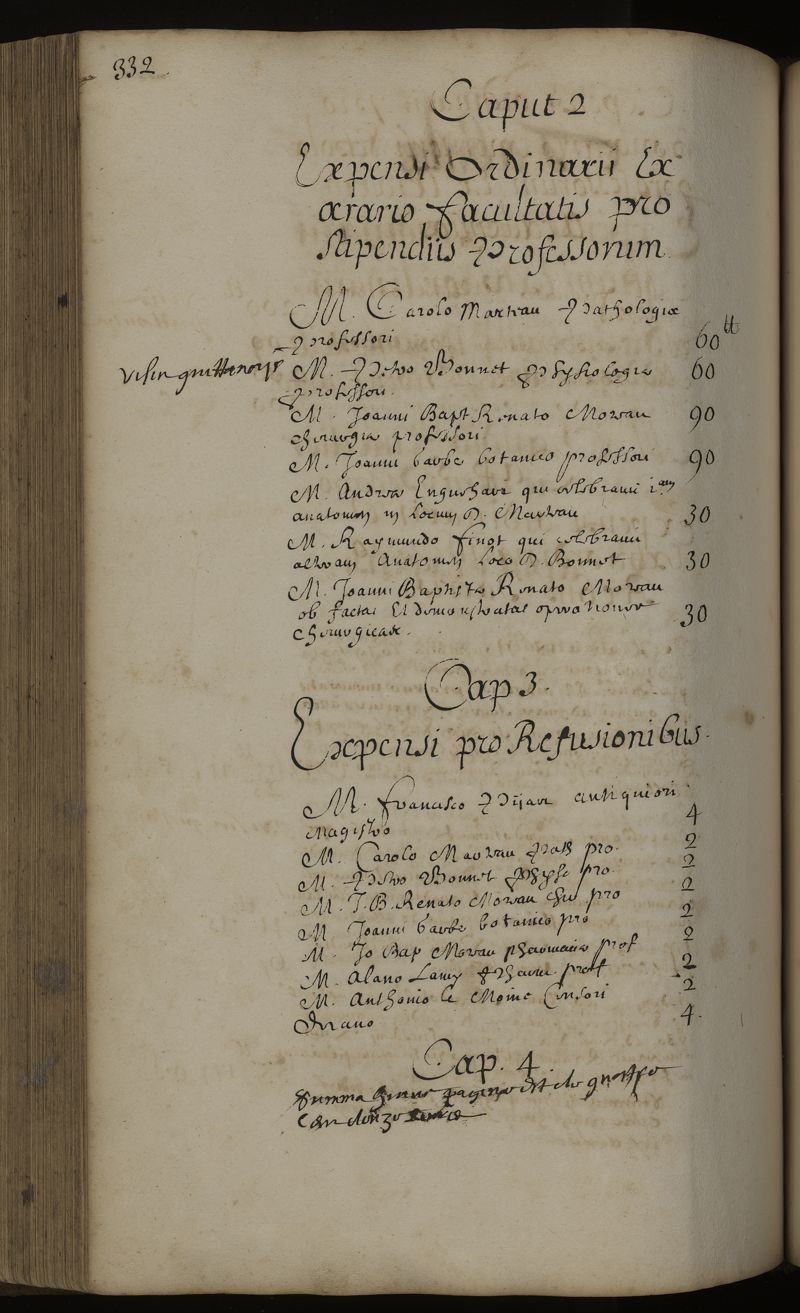 332
Caput 2
Expensi Ordinarii Ex
ærario facultatis pro
Stipendiis Professorum
M. Carolo Marteau Pathologiæ
professori 60 tt
M. Petro Bonnet Physiologiæ 60
professori.
M. Joanni Bapt Renato Moreau 90
chirurgiæ professori
M. Joanni barbe botanico professori 90
M. Andreæ Enguehard qui celebravit 1am
anatomen in locum D. Marteau 30
M. Raymundo finot qui celebravit
alteram Anatomen loco D. Bonnet 30
M. Joanni Baptistæ Renato Moreau
ob factas Et demonstratas operationes 30
chirurgicas.
Cap 3.
Expensi pro Refusionibus.
M. francisco Pijart antiquiori 4
magistro
M. Carolo Marteau Path pro. 2
M. Petro Bonnet Physe pro 2
M. J. B. Renato Moreau chir pro 2
M. Joanni barbe botanico pro 2
M. Jo Bap Moreau pharmaciæ prof 2
M. Alano Lamy Pharm. prof 2
M. Anthonio le Moine Censori 2
Decano 4.
Cap. 4
Summa pagina est de quatre
cen donze